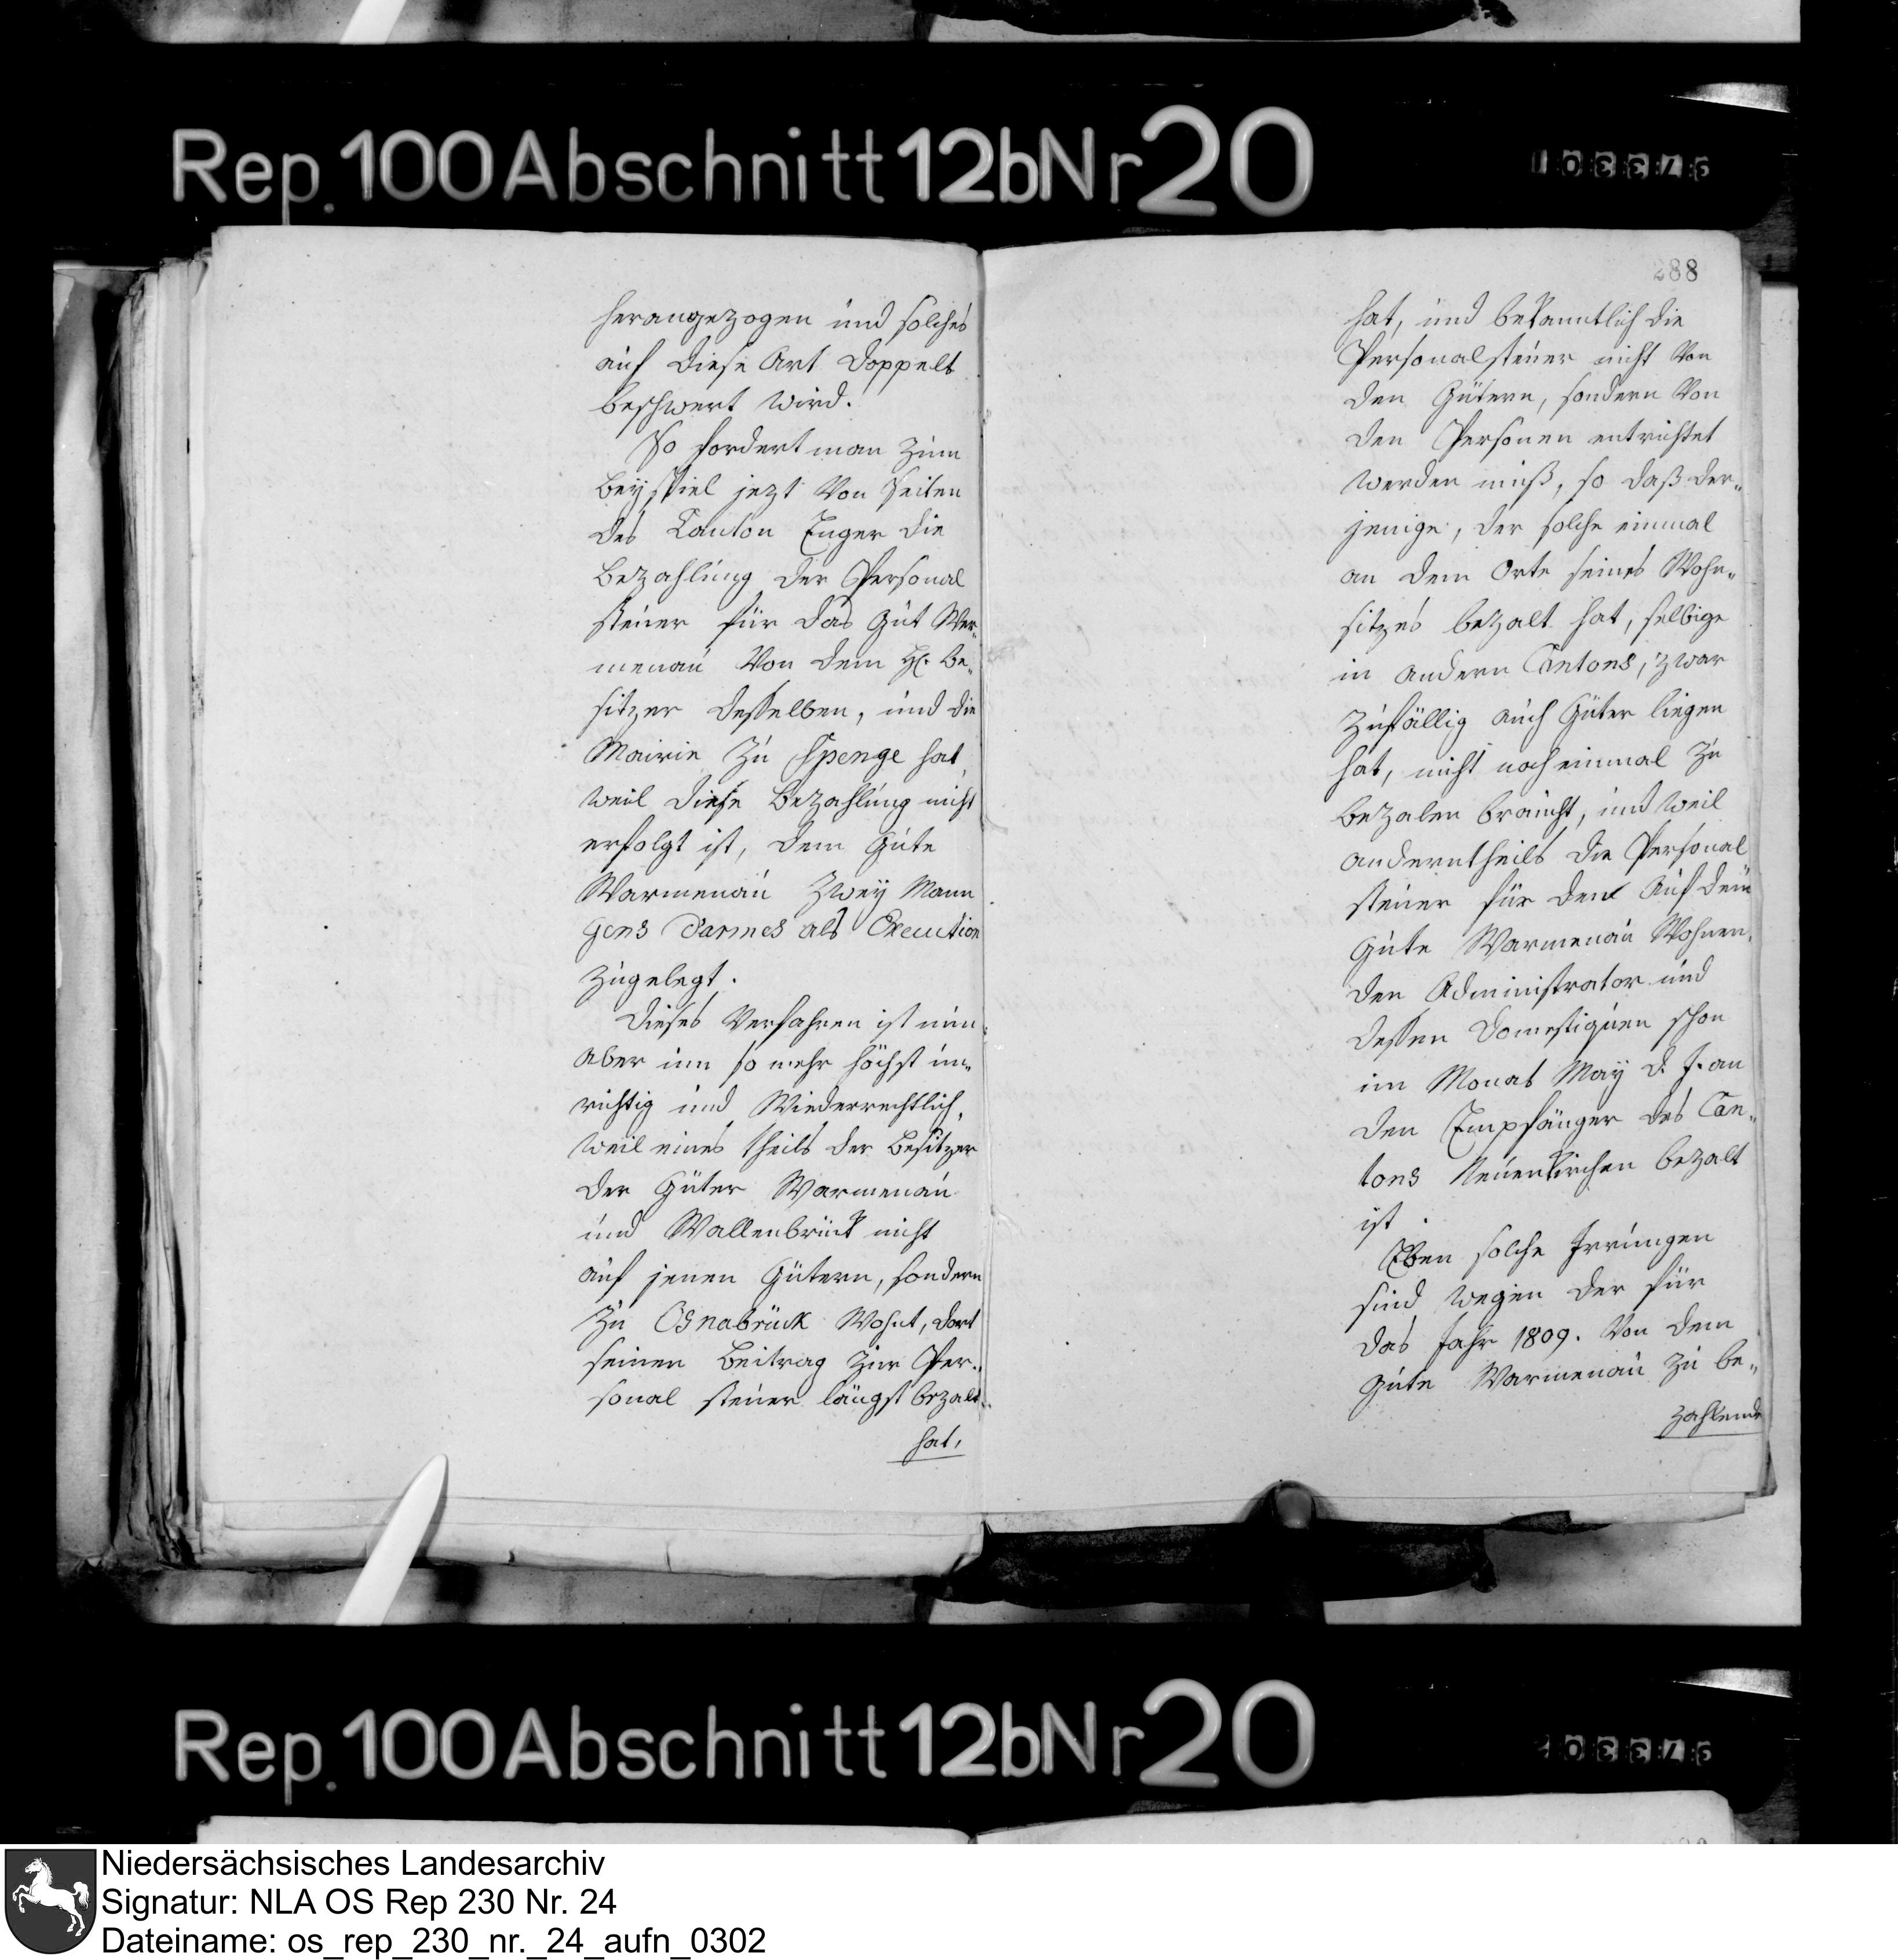 Rep. 100 Abschnitt 12b Nr 20
herangezogen und solches
auf diese Art doppelt
beschwert wird.
So fordert man zum
Beyspiel jezt von Seiten
des Canton Enger die
Bezahlung der Personal
steuer für das Gut War-
menau von dem H. Be-
sitzer desselben, und die
Mairie zu Spenge hat,
weil diese Bezahlung nicht
erfolgt ist, dem Gute
Warmenau zwey Mann
Gens d'armes als Execution
zugelegt.
Dieses Verfahren ist nun
aber um so mehr höchst un-
richtig und wiederrechtlich,
weil eines theils der Besitzer
der Güter Warmenau
und Wallenbrück nicht
auf jenen Gütern, sondern
zu Osnabrück wohnt, dort
seinen Beitrag zur Per-
sonal steuer längst bezalt
hat,
288
hat, und bekanntlich die
Personalsteuer nicht von
den Gütern, sondern von
den Personen entrichtet
werden muß, so daß der-
jenige, der solche einmal
an dem Orte seines Wohn-
sitzes bezalt hat, selbige
in andern Cantons, zwar
zufällig auch Güter liegen
hat, nicht noch einmal zu
bezalen braucht, und weil
anderntheils die Personal
steuer für den auf dem
Gute Warmenau wohnen-
den Administrator und
dessen Domestiquen schon
im Monat May d. J. an
den Empfänger des Can-
tons Neuenkirchen bezalt
ist.
Eben solche Irrungen
sind wegen der für
das Jahr 1809. von dem
Gute Warmenau zu be-
zahlende
Rep. 100 Abschnitt 12b Nr 20
Niedersächsisches Landesarchiv
Signatur: NLA OS Rep 230 Nr. 24
Dateiname: os_rep_230_nr._24_aufn_0302